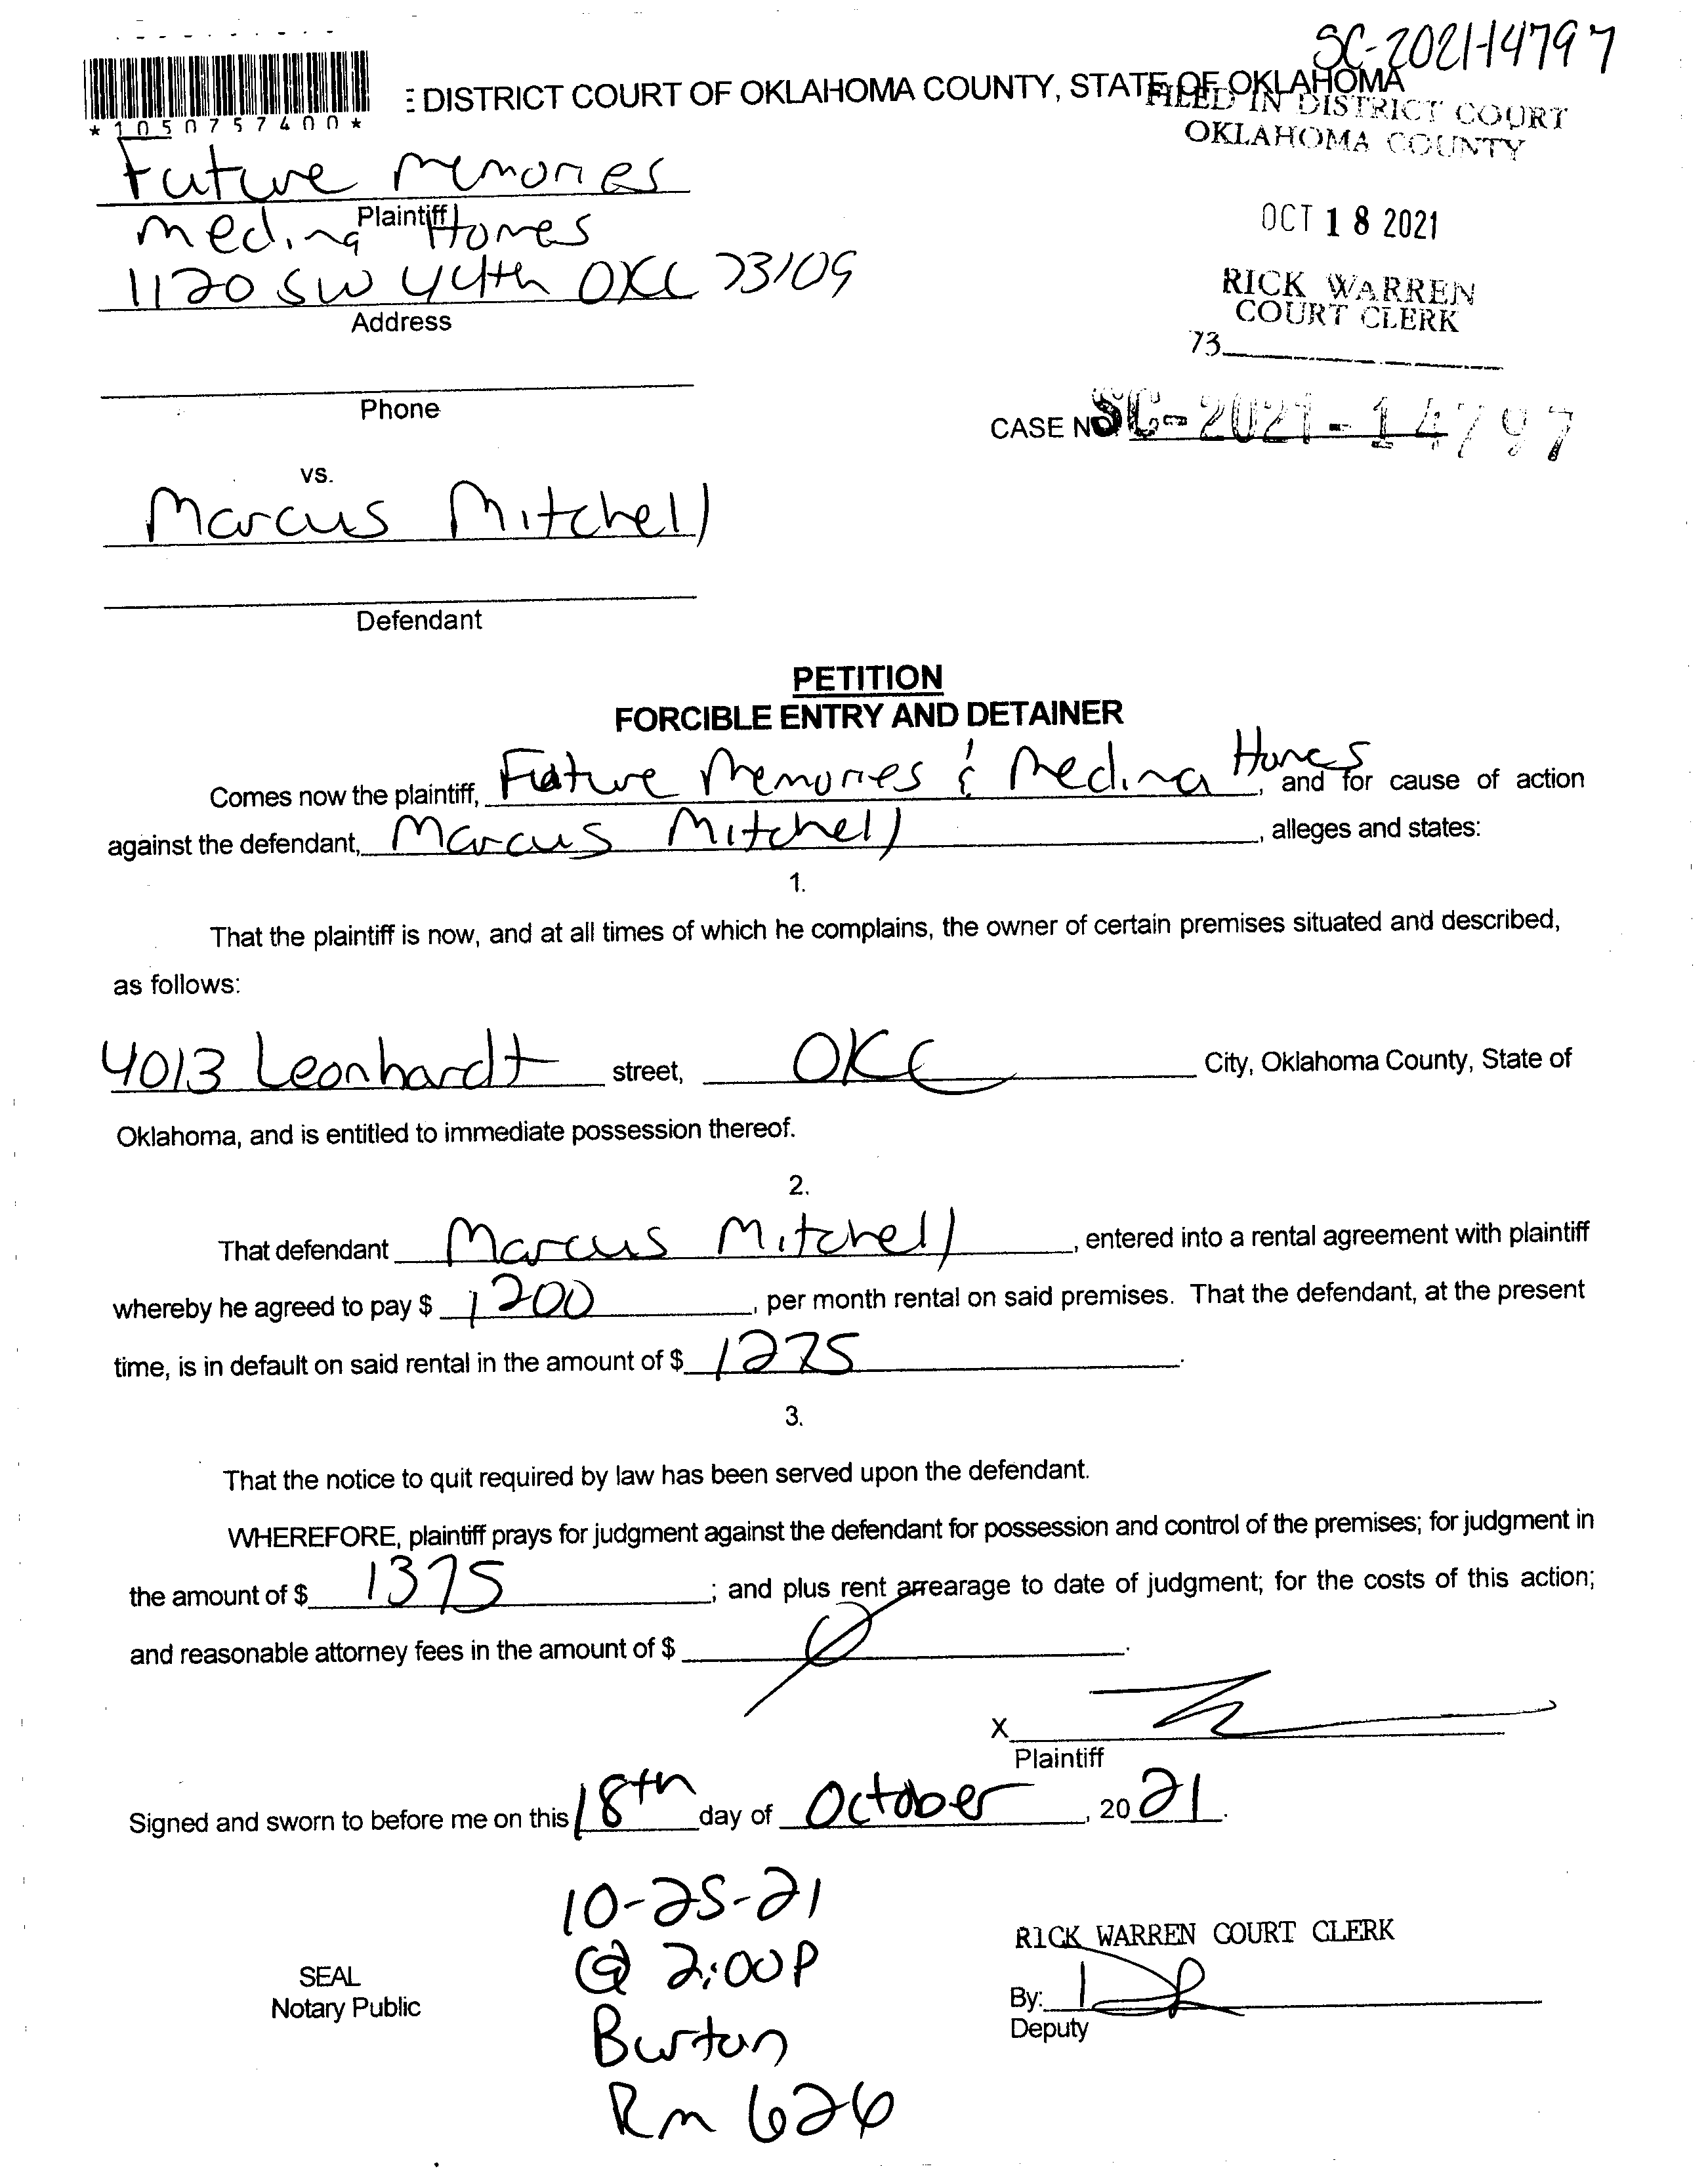 SC-2021-14797
E DISTRICT COURT OF OKLAHOMA COUNTY, STATE OF OKLAHOMA
*1050757400*
FILED IN DISTRICT COURT
OKLAHOMA COUNTY
Future Memories
Plaintiff
Medina Homes
OCT 18 2021
1120 SW 44th OKC 73109
Address
RICK WARREN
COURT CLERK
73
Phone
CASE NO. SC-2021-14797
vs.
Marcus Mitchell
Defendant
PETITION
FORCIBLE ENTRY AND DETAINER
Comes now the plaintiff, Future Memories & Medina Homes, and for cause of action
against the defendant, Marcus Mitchell, alleges and states:
1.
That the plaintiff is now, and at all times of which he complains, the owner of certain premises situated and described,
as follows:
4013 Leonhardt street, OKC City, Oklahoma County, State of
Oklahoma, and is entitled to immediate possession thereof.
2.
That defendant Marcus Mitchell, entered into a rental agreement with plaintiff
whereby he agreed to pay $ 1200, per month rental on said premises. That the defendant, at the present
time, is in default on said rental in the amount of $ 1275.
3.
That the notice to quit required by law has been served upon the defendant.
WHEREFORE, plaintiff prays for judgment against the defendant for possession and control of the premises; for judgment in
the amount of $ 1375; and plus rent arrearage to date of judgment; for the costs of this action;
and reasonable attorney fees in the amount of $ 0.
X
Plaintiff
Signed and sworn to before me on this 18th day of October, 2021.
10-25-21
@ 2:00P
Burton
Rm 626
RICK WARREN COURT CLERK
SEAL
Notary Public
By:
Deputy